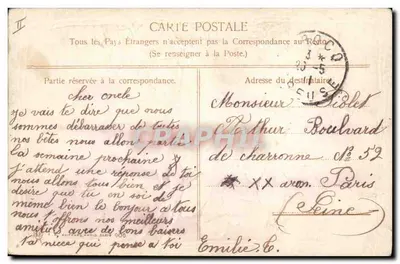 II
CARTE POSTALE
Tous les Pays Étrangers n'acceptent pas la Correspondance au Recto
(Se renseigner à la Poste.)
Partie réservée à la correspondance.
Adresse du destinataire
cher oncle
je vais te dire que nous
sommes débarasser de toutes
nos bêtes nous allons partir
la semaine prochaine
j'attend une réponse de toi
nous allons tous bien et je
désire que tu en soi de
même bien le bonjour a tous
nous t'offrons nos meilleurs
amitiés avec de bons baisers
ta niece qui pense a toi
Emilie C.
Monsieur Violet
Arthur Boulvard
de charronne No 52
XX arron Paris
(Seine)